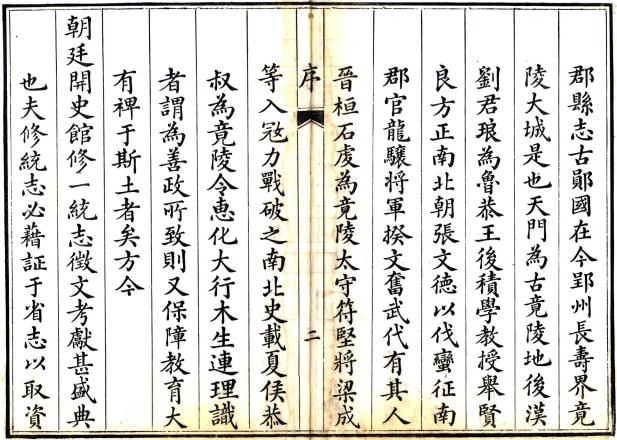 郡縣志古鄖國在今郢州長壽界竟
陵大城是也天門為古竟陵地後漢
劉君琅為魯恭王後積學教授舉賢
良方正南北朝張文德以伐蠻征南
郡官龍驤將軍揆文奮武代有其人
晉桓石虔為竟陵太守符堅將梁成
序
二
等入寇力戰破之南北史載夏侯恭
叔為竟陵令恵化大行木生連理識
者謂為善政所致則又保障教育大
有裨于斯土者矣方今
朝廷開史館修一統志徵文考獻甚盛典
也夫修統志必藉証于省志以取資